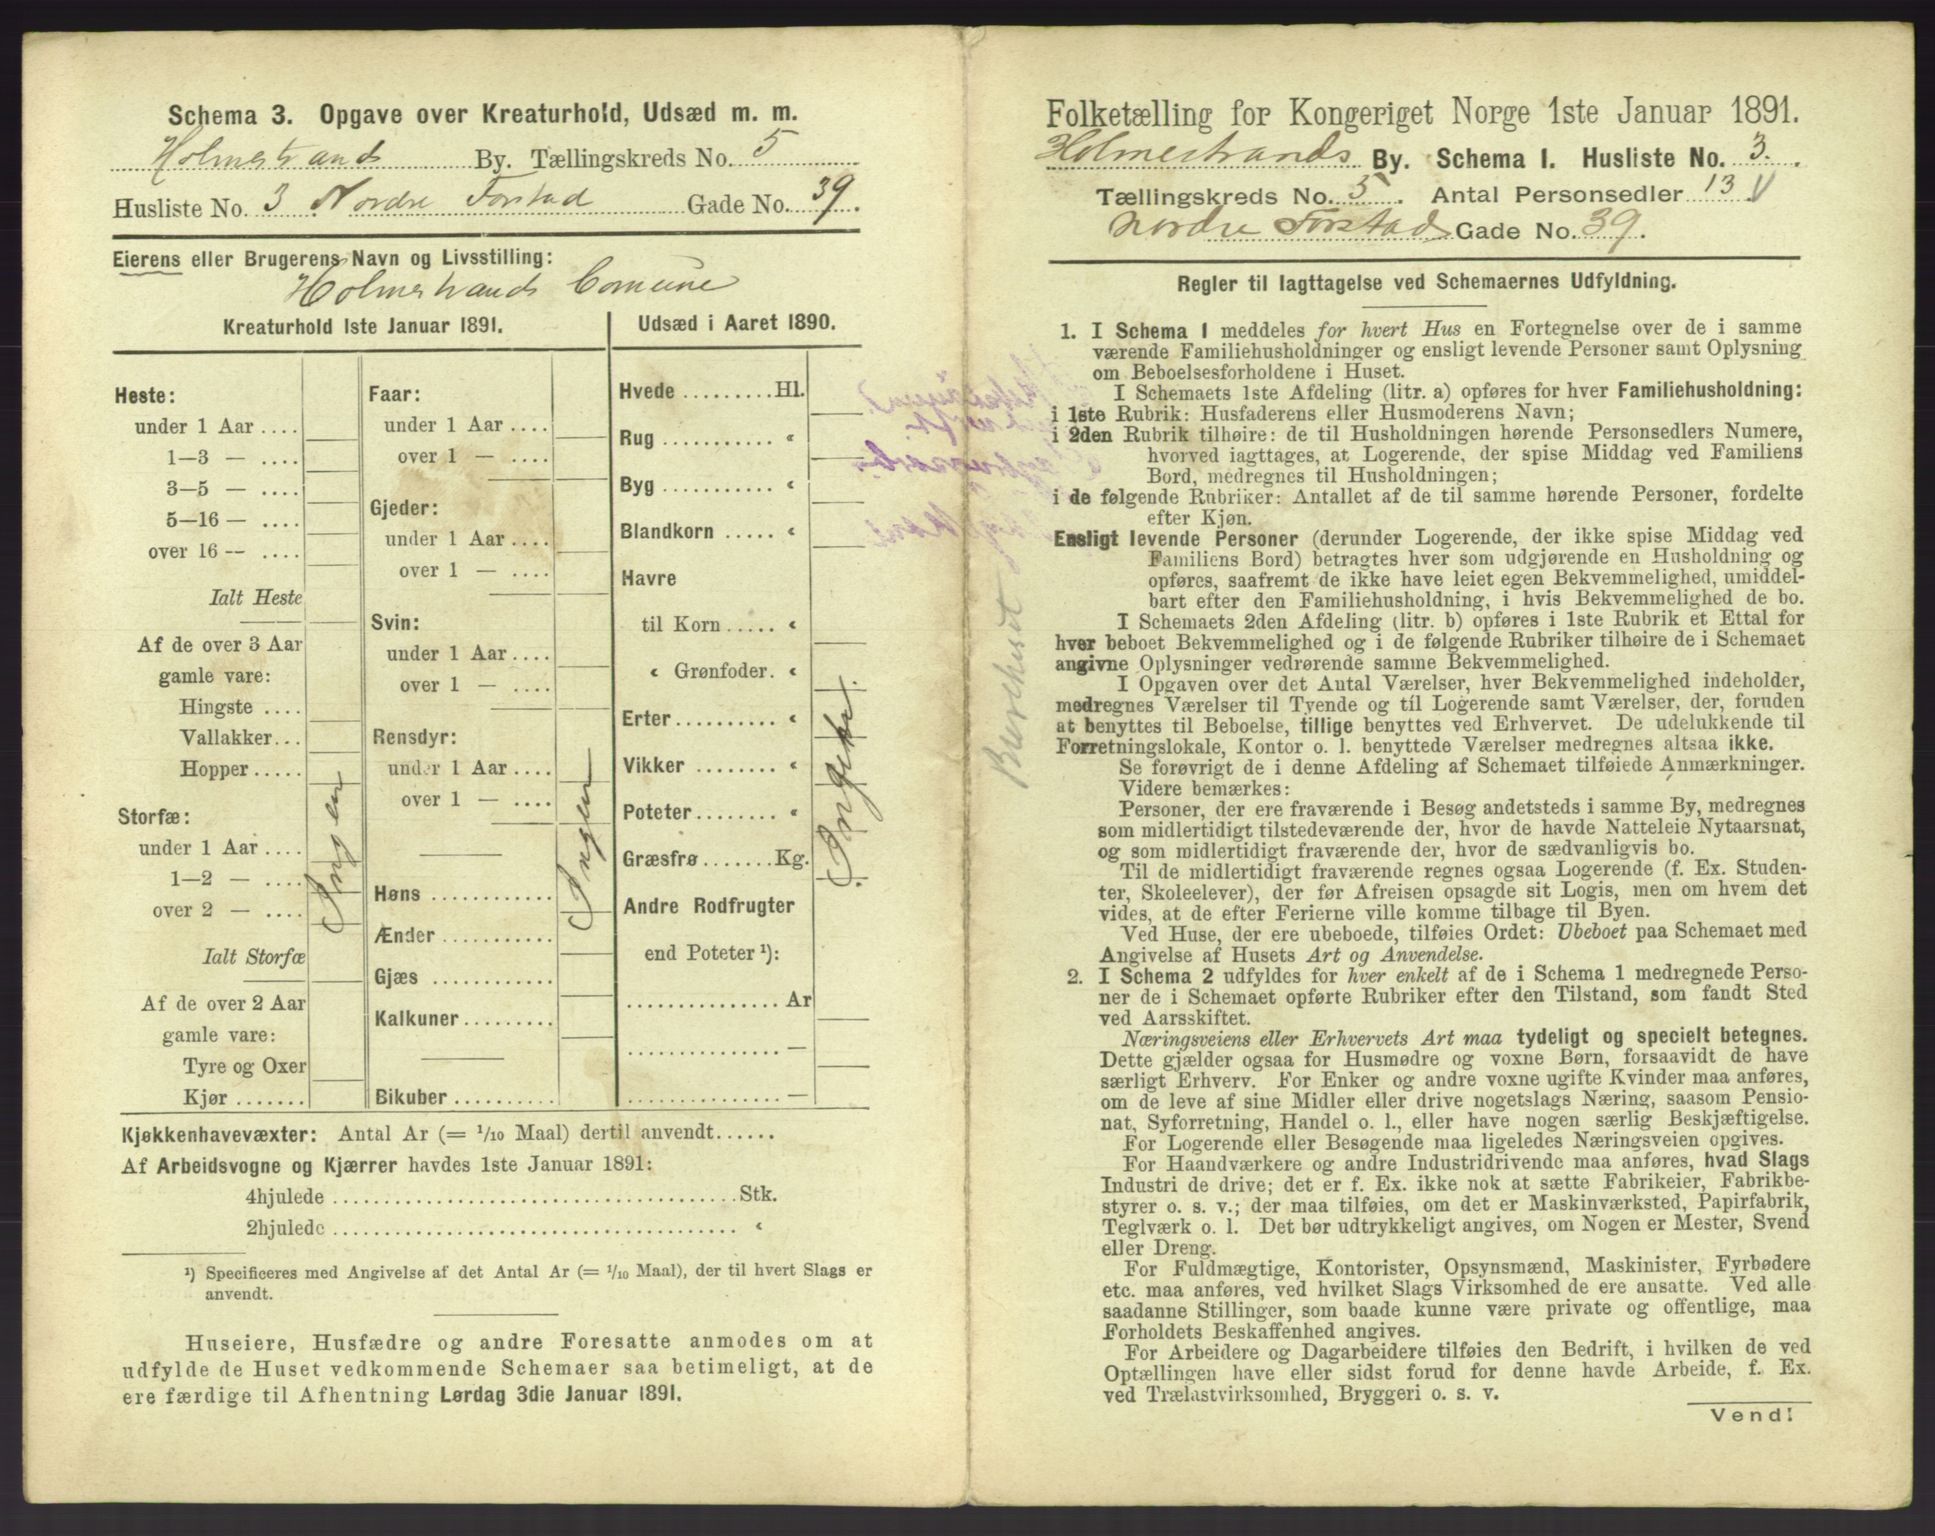 Schema 3. Opgave over Kreaturhold, Udsæd m. m.
Holmestrands By. Tællingskreds No. 5
Husliste No. 3 Nordre Forstad Gade No. 39.
Eierens eller Brugerens Navn og Livsstilling:
Holmestrands Comune
Kreaturhold 1ste Januar 1891.
Heste:
under 1 Aar ....
1—3 — ....
3—5 — ....
5—16 — ....
over 16 — ....
Ialt Heste
Af de over 3 Aar
gamle vare:
Hingste ....
Vallakker...
Hopper.....
Storfæ:
under 1 Aar ....
1—2 — ....
over 2 — ....
Ialt Storfæ
Af de over 2 Aar
gamle vare:
Tyre og Oxer
Kjør .......
Ingen
Faar:
under 1 Aar ....
over 1 — ....
Gjeder:
under 1 Aar ....
over 1 — ....
Svin:
under 1 Aar ....
over 1 — ....
Rensdyr:
under 1 Aar ....
over 1 — ....
Høns ............
Ænder ...........
Gjæs ............
Kalkuner.........
Bikuber ..........
Ingen
Udsæd i Aaret 1890.
Hvede .........Hl.
Rug ........... «
Byg ........... «
Blandkorn ..... «
Havre
til Korn ..... «
« Grønfoder. «
Erter........... «
Vikker ........ «
Poteter........ «
Græsfrø.......Kg.
Andre Rodfrugter
end Poteter ¹):
............... Ar
............... —
............... —
Kjøkkenhavevæxter: Antal Ar (= 1/10 Maal) dertil anvendt......
Af Arbeidsvogne og Kjærrer havdes 1ste Januar 1891:
4hjulede ........................................Stk.
2hjulede ........................................ «
¹) Specificeres med Angivelse af det Antal Ar (= 1/10 Maal), der til hvert Slags er
anvendt.
Huseiere, Husfædre og andre Foresatte anmodes om at
udfylde de Huset vedkommende Schemaer saa betimeligt, at de
ere færdige til Afhentning Lørdag 3die Januar 1891.
Folketælling for Kongeriget Norge 1ste Januar 1891.
Holmestrands By. Schema 1. Husliste No. 3.
Tællingskreds No. 5. Antal Personsedler 13 V
Nordre Forstad Gade No. 39.
Regler til Iagttagelse ved Schemaernes Udfyldning.
1. I Schema 1 meddeles for hvert Hus en Fortegnelse over de i samme
værende Familiehusholdninger og ensligt levende Personer samt Oplysning
om Beboelsesforholdene i Huset.
I Schemaets 1ste Afdeling (litr. a) opføres for hver Familiehusholdning:
i 1ste Rubrik: Husfaderens eller Husmoderens Navn;
i 2den Rubrik tilhøire: de til Husholdningen hørende Personsedlers Numere,
hvorved iagttages, at Logerende, der spise Middag ved Familiens
Bord, medregnes til Husholdningen;
i de følgende Rubriker: Antallet af de til samme hørende Personer, fordelte
efter Kjøn.
Ensligt levende Personer (derunder Logerende, der ikke spise Middag ved
Familiens Bord) betragtes hver som udgjørende en Husholdning og
opføres, saafremt de ikke have leiet egen Bekvemmelighed, umiddel-
bart efter den Familiehusholdning, i hvis Bekvemmelighed de bo.
I Schemaets 2den Afdeling (litr. b) opføres i 1ste Rubrik et Ettal for
hver beboet Bekvemmelighed og i de følgende Rubriker tilhøire de i Schemaet
angivne Oplysninger vedrørende samme Bekvemmelighed.
I Opgaven over det Antal Værelser, hver Bekvemmelighed indeholder,
medregnes Værelser til Tyende og til Logerende samt Værelser, der, foruden
at benyttes til Beboelse, tillige benyttes ved Erhvervet. De udelukkende til
Forretningslokale, Kontor o. l. benyttede Værelser medregnes altsaa ikke.
Se forøvrigt de i denne Afdeling af Schemaet tilføiede Anmærkninger.
Videre bemærkes:
Personer, der ere fraværende i Besøg andetsteds i samme By, medregnes
som midlertidigt tilstedeværende der, hvor de havde Natteleie Nytaarsnat,
og som midlertidigt fraværende der, hvor de sædvanligvis bo.
Til de midlertidigt fraværende regnes ogsaa Logerende (f. Ex. Studen-
ter, Skoleelever), der før Afreisen opsagde sit Logis, men om hvem det
vides, at de efter Ferierne ville komme tilbage til Byen.
Ved Huse, der ere ubeboede, tilføies Ordet: Ubeboet paa Schemaet med
Angivelse af Husets Art og Anvendelse.
2. I Schema 2 udfyldes for hver enkelt af de i Schema 1 medregnede Perso-
ner de i Schemaet opførte Rubriker efter den Tilstand, som fandt Sted
ved Aarsskiftet.
Næringsveiens eller Erhvervets Art maa tydeligt og specielt betegnes.
Dette gjælder ogsaa for Husmødre og voxne Børn, forsaavidt de have
særligt Erhverv. For Enker og andre voxne ugifte Kvinder maa anføres,
om de leve af sine Midler eller drive nogetslags Næring, saasom Pensio-
nat, Syforretning, Handel o. l., eller have nogen særlig Beskjæftigelse.
For Logerende eller Besøgende maa ligeledes Næringsveien opgives.
For Haandværkere og andre Industridrivende maa anføres, hvad Slags
Industri de drive; det er f. Ex. ikke nok at sætte Fabrikeier, Fabrikbe-
styrer o. s. v.; der maa tilføies, om det er Maskinværksted, Papirfabrik,
Teglværk o. l. Det bør udtrykkeligt angives, om Nogen er Mester, Svend
eller Dreng.
For Fuldmægtige, Kontorister, Opsynsmænd, Maskinister, Fyrbødere
etc. maa anføres, ved hvilket Slags Virksomhed de ere ansatte. Ved alle
saadanne Stillinger, som baade kunne være private og offentlige, maa
Forholdets Beskaffenhed angives.
For Arbeidere og Dagarbeidere tilføies den Bedrift, i hvilken de ved
Optællingen have eller sidst forud for denne havde Arbeide, f. Ex.
ved Trælastvirksomhed, Bryggeri o. s. v.
Vend!